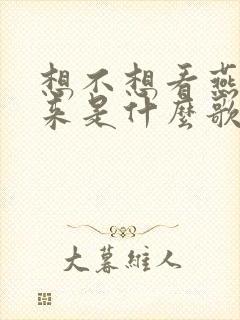 想不想看燕
来是什麼歌
大暮維人